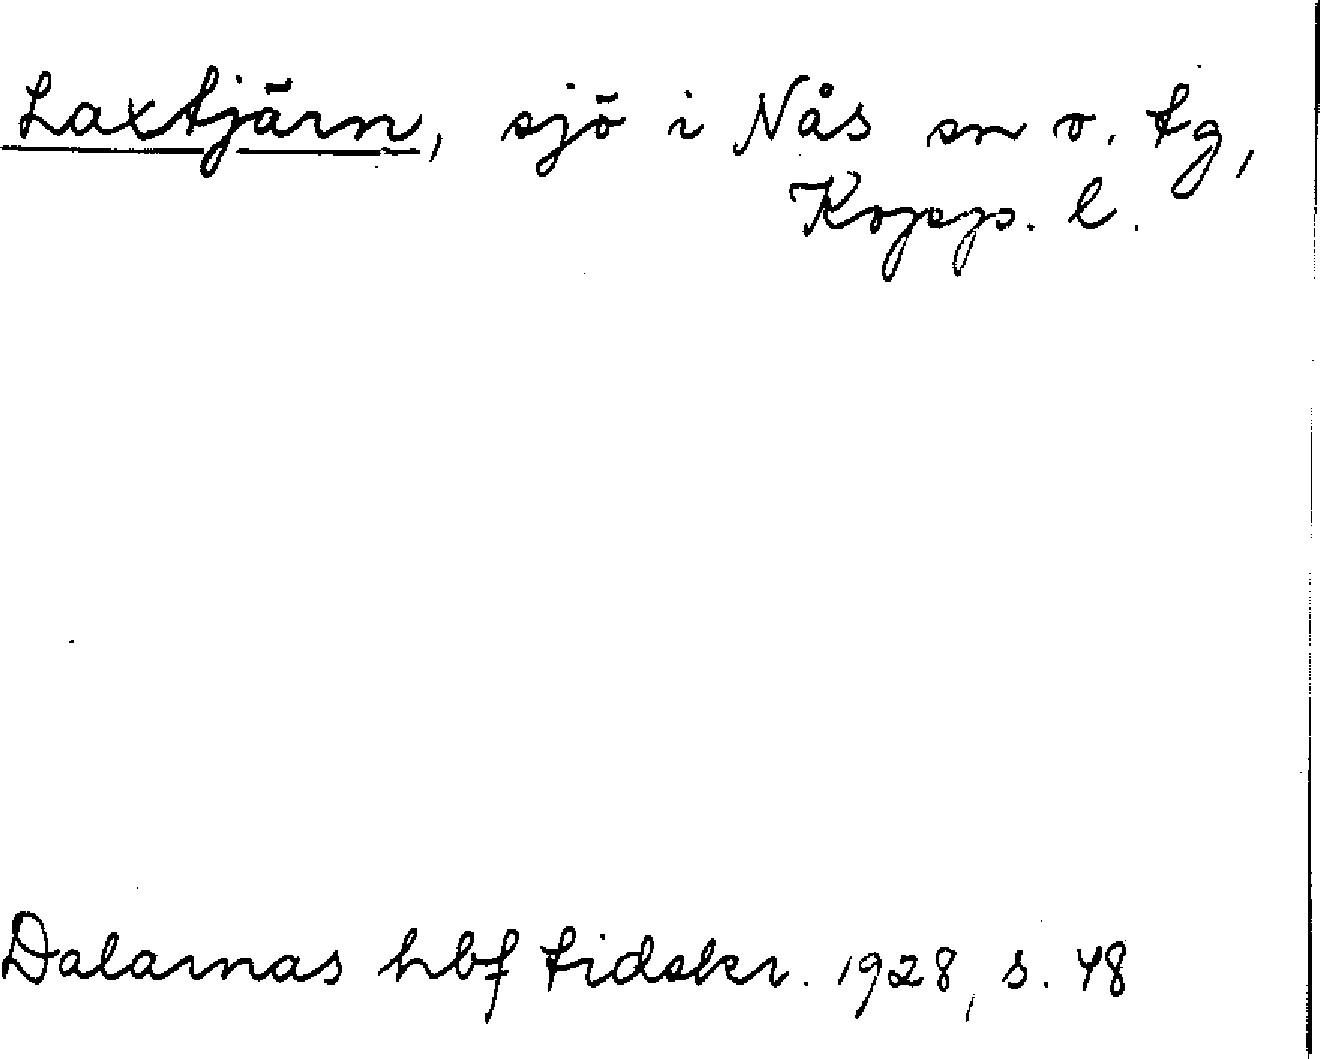 Laxtjärn, sjö i Nås sn o. tg,
Kopp. l.
Dalarnas hbf tidskr. 1928, s. 48